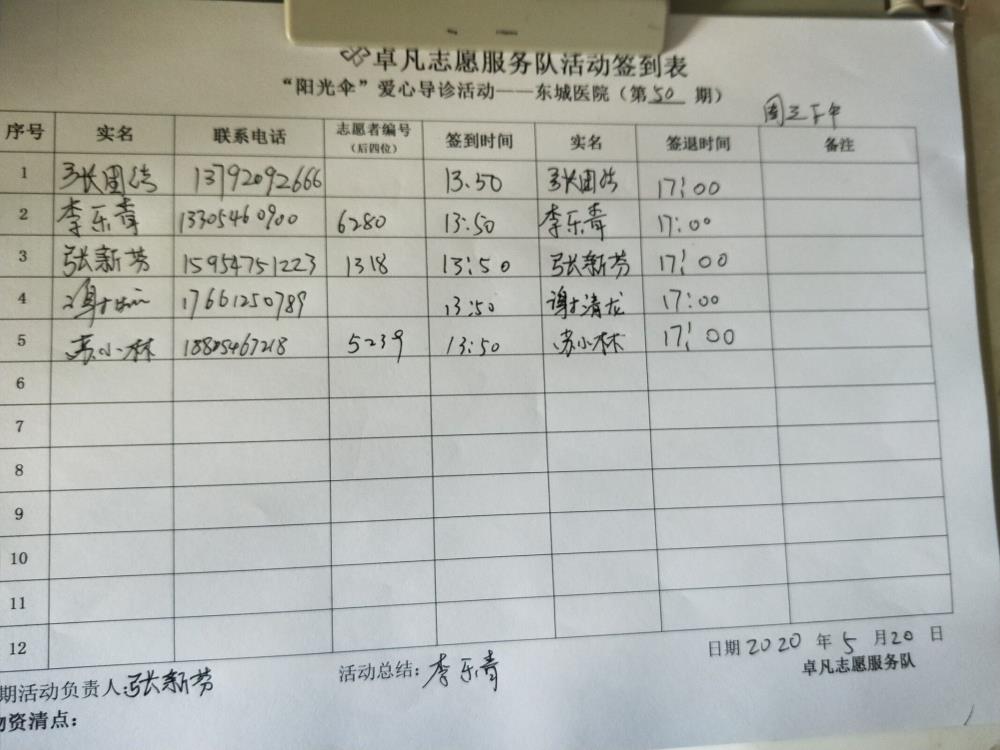 卓凡志愿服务队活动签到表
“阳光伞”爱心导诊活动——东城医院（第50期）
周三下午
序号 实名 联系电话 志愿者编号（后四位） 签到时间 实名 签退时间 备注
1 张国洁 13792092666 13.50 张国洁 17:00
2 李乐青 13305460900 6280 13:50 李乐青 17:00
3 张新芬 15954751223 1318 13:50 张新芬 17:00
4 谢清龙 17661250789 13:50 谢清龙 17:00
5 苏小林 18805467218 5239 13:50 苏小林 17:00
6
7
8
9
10
11
12
日期2020年5月20日
卓凡志愿服务队
期活动负责人:张新芬 活动总结:李乐青
物资清点：